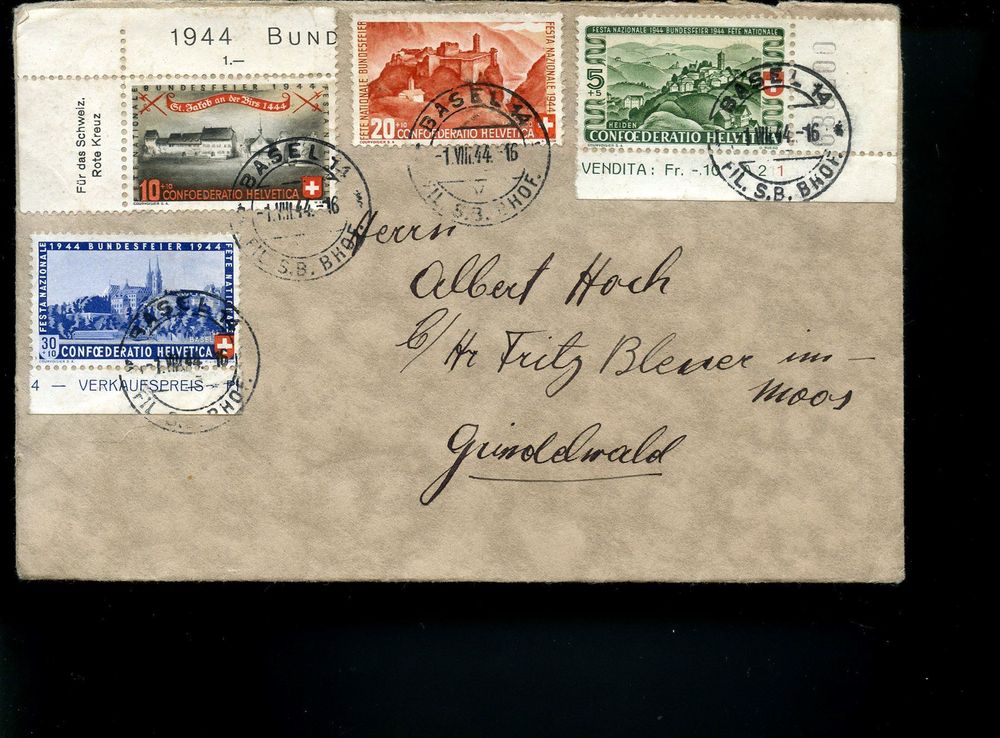 1944 BUND
1.—
Für das Schweiz.
Rote Kreuz
BUNDESFEIER 1944
St. Jakob an der Birs 1444
10+10 CONFOEDERATIO HELVETICA
COURVOISIER S.A.
FÊTE NATIONALE BUNDESFEIER
FESTA NAZIONALE 1944
20+10 CONFOEDERATIO HELVETICA
COURVOISIER S.A.
FESTA NAZIONALE 1944 BUNDESFEIER 1944 FÊTE NATIONALE
5+5
HEIDEN
CONFOEDERATIO HELVETICA
COURVOISIER S.A.
VENDITA: Fr. -.10
2 1
BASEL 14
-1.VIII.44.-16
FIL. S.B. BHOF.
BASEL 14
-1.VIII.44.-16
FIL. S.B. BHOF.
BASEL 14
-1.VIII.44.-16
FIL. S.B. BHOF.
1944 BUNDESFEIER 1944
FESTA NAZIONALE
FÊTE NATIONALE
BASEL
30+10 CONFŒDERATIO HELVETICA
COURVOISIER S.A.
4 — VERKAUFSPREIS
BASEL 14
-1.VIII.44.-16
FIL. S.B. BHOF.
Herrn
Albert Hoch
c/ Hr Fritz im —
Moos
Grindelwald